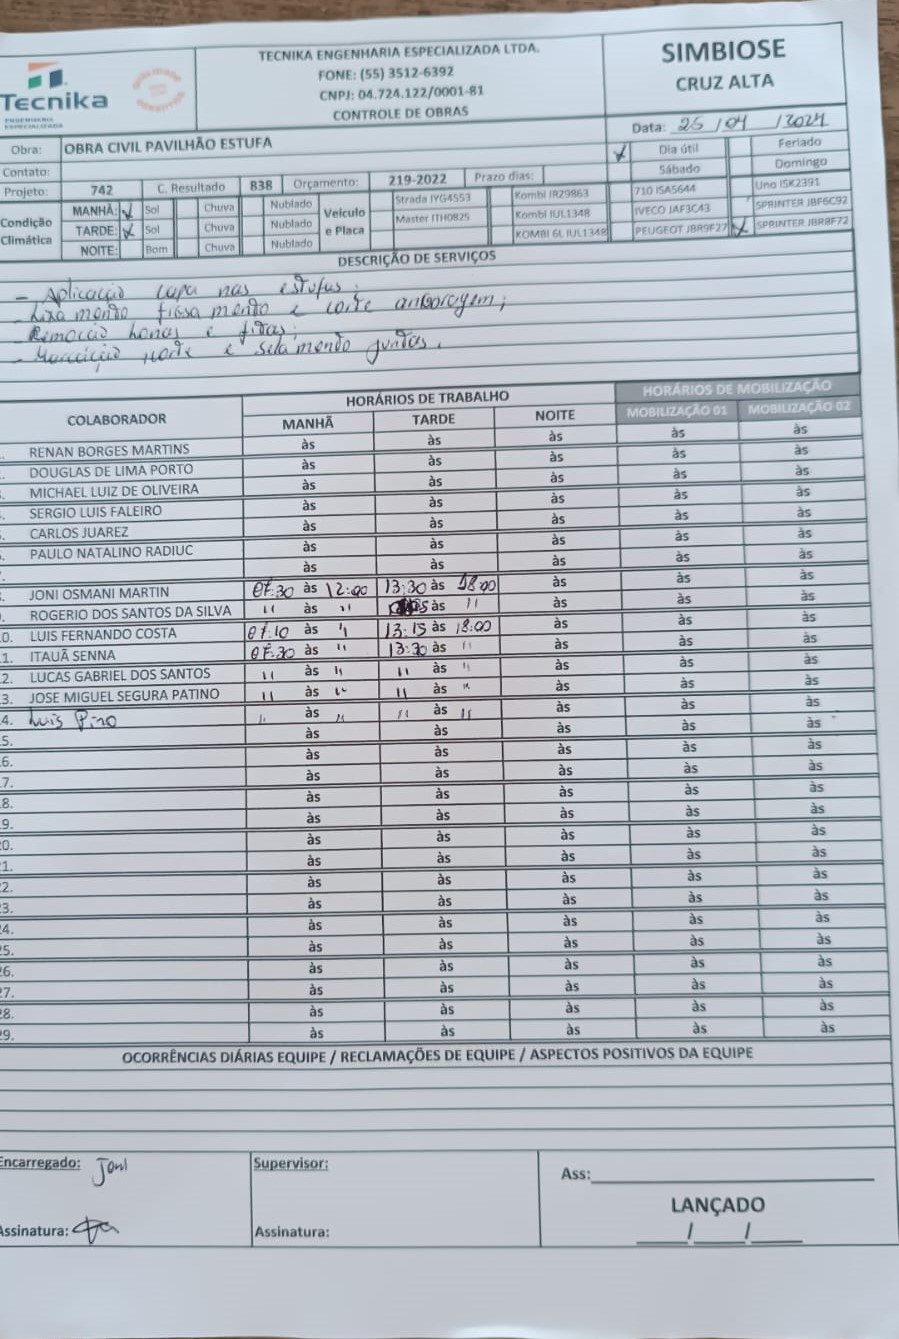 Tecnika
ENGENHARIA
ESPECIALIZADA
TECNIKA ENGENHARIA ESPECIALIZADA LTDA.
FONE: (55) 3512-6392
CNPJ: 04.724.122/0001-81
CONTROLE DE OBRAS
SIMBIOSE
CRUZ ALTA
Data: 25 / 04 / 2024
Obra: OBRA CIVIL PAVILHÃO ESTUFA
Dia útil Feriado
Contato:
Sábado Domingo
Projeto: 742 C. Resultado 838 Orçamento: 219-2022 Prazo dias:
Condição Climática
MANHÃ: Sol Chuva Nublado
TARDE: Sol Chuva Nublado
NOITE: Bom Chuva Nublado
Veículo e Placa
Strada IYG4553 Kombi IRZ9863 710 ISA5644 Uno ISK2391
Master ITH0825 Kombi IUL1348 IVECO JAF3C43 SPRINTER JBF6C92
KOMBI 6L IUL1348 PEUGEOT JBR9F27 SPRINTER JBR8F72
DESCRIÇÃO DE SERVIÇOS
- Aplicação capa nas estufas;
- Lixamento e corte ancoragem;
- Remoção lonas e fitas;
- e selamendo juntas.
COLABORADOR HORÁRIOS DE TRABALHO HORÁRIOS DE MOBILIZAÇÃO
MANHÃ TARDE NOITE MOBILIZAÇÃO 01 MOBILIZAÇÃO 02
RENAN BORGES MARTINS às às às às às
DOUGLAS DE LIMA PORTO às às às às às
MICHAEL LUIZ DE OLIVEIRA às às às às às
SERGIO LUIS FALEIRO às às às às às
CARLOS JUAREZ às às às às às
PAULO NATALINO RADIUC às às às às às
às às às às às
JONI OSMANI MARTIN 07:30 às 12:00 13:30 às 18:00 às às às
ROGERIO DOS SANTOS DA SILVA " às " às " às às às
0. LUIS FERNANDO COSTA 07:10 às " 13:15 às 18:00 às às às
1. ITAUÃ SENNA 07:30 às " 13:30 às " às às às
2. LUCAS GABRIEL DOS SANTOS " às " " às " às às às
3. JOSE MIGUEL SEGURA PATINO " às " " às " às às às
4. Luis Pino " às " " às " às às às
5. às às às às às
6. às às às às às
7. às às às às às
8. às às às às às
9. às às às às às
0. às às às às às
1. às às às às às
2. às às às às às
3. às às às às às
4. às às às às às
5. às às às às às
6. às às às às às
7. às às às às às
8. às às às às às
9. às às às às às
OCORRÊNCIAS DIÁRIAS EQUIPE / RECLAMAÇÕES DE EQUIPE / ASPECTOS POSITIVOS DA EQUIPE
Encarregado: Joni Supervisor: Ass:
LANÇADO
Assinatura: Assinatura: / /